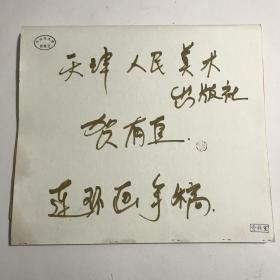 天津人民美术
出版社
贺友直
连环画手稿